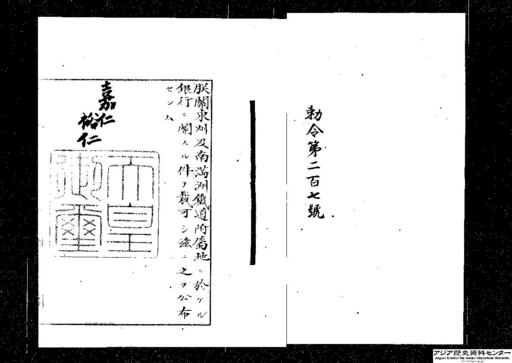 勅令第二百七號
朕關東州及南滿洲鐵道附屬地ニ於ケル
銀行ニ關スル件ヲ裁可シ茲ニ之ヲ公布
セシム
嘉仁
裕仁
天皇
御璽
アジア歴史資料センター
Japan Center for Asian Historical Records